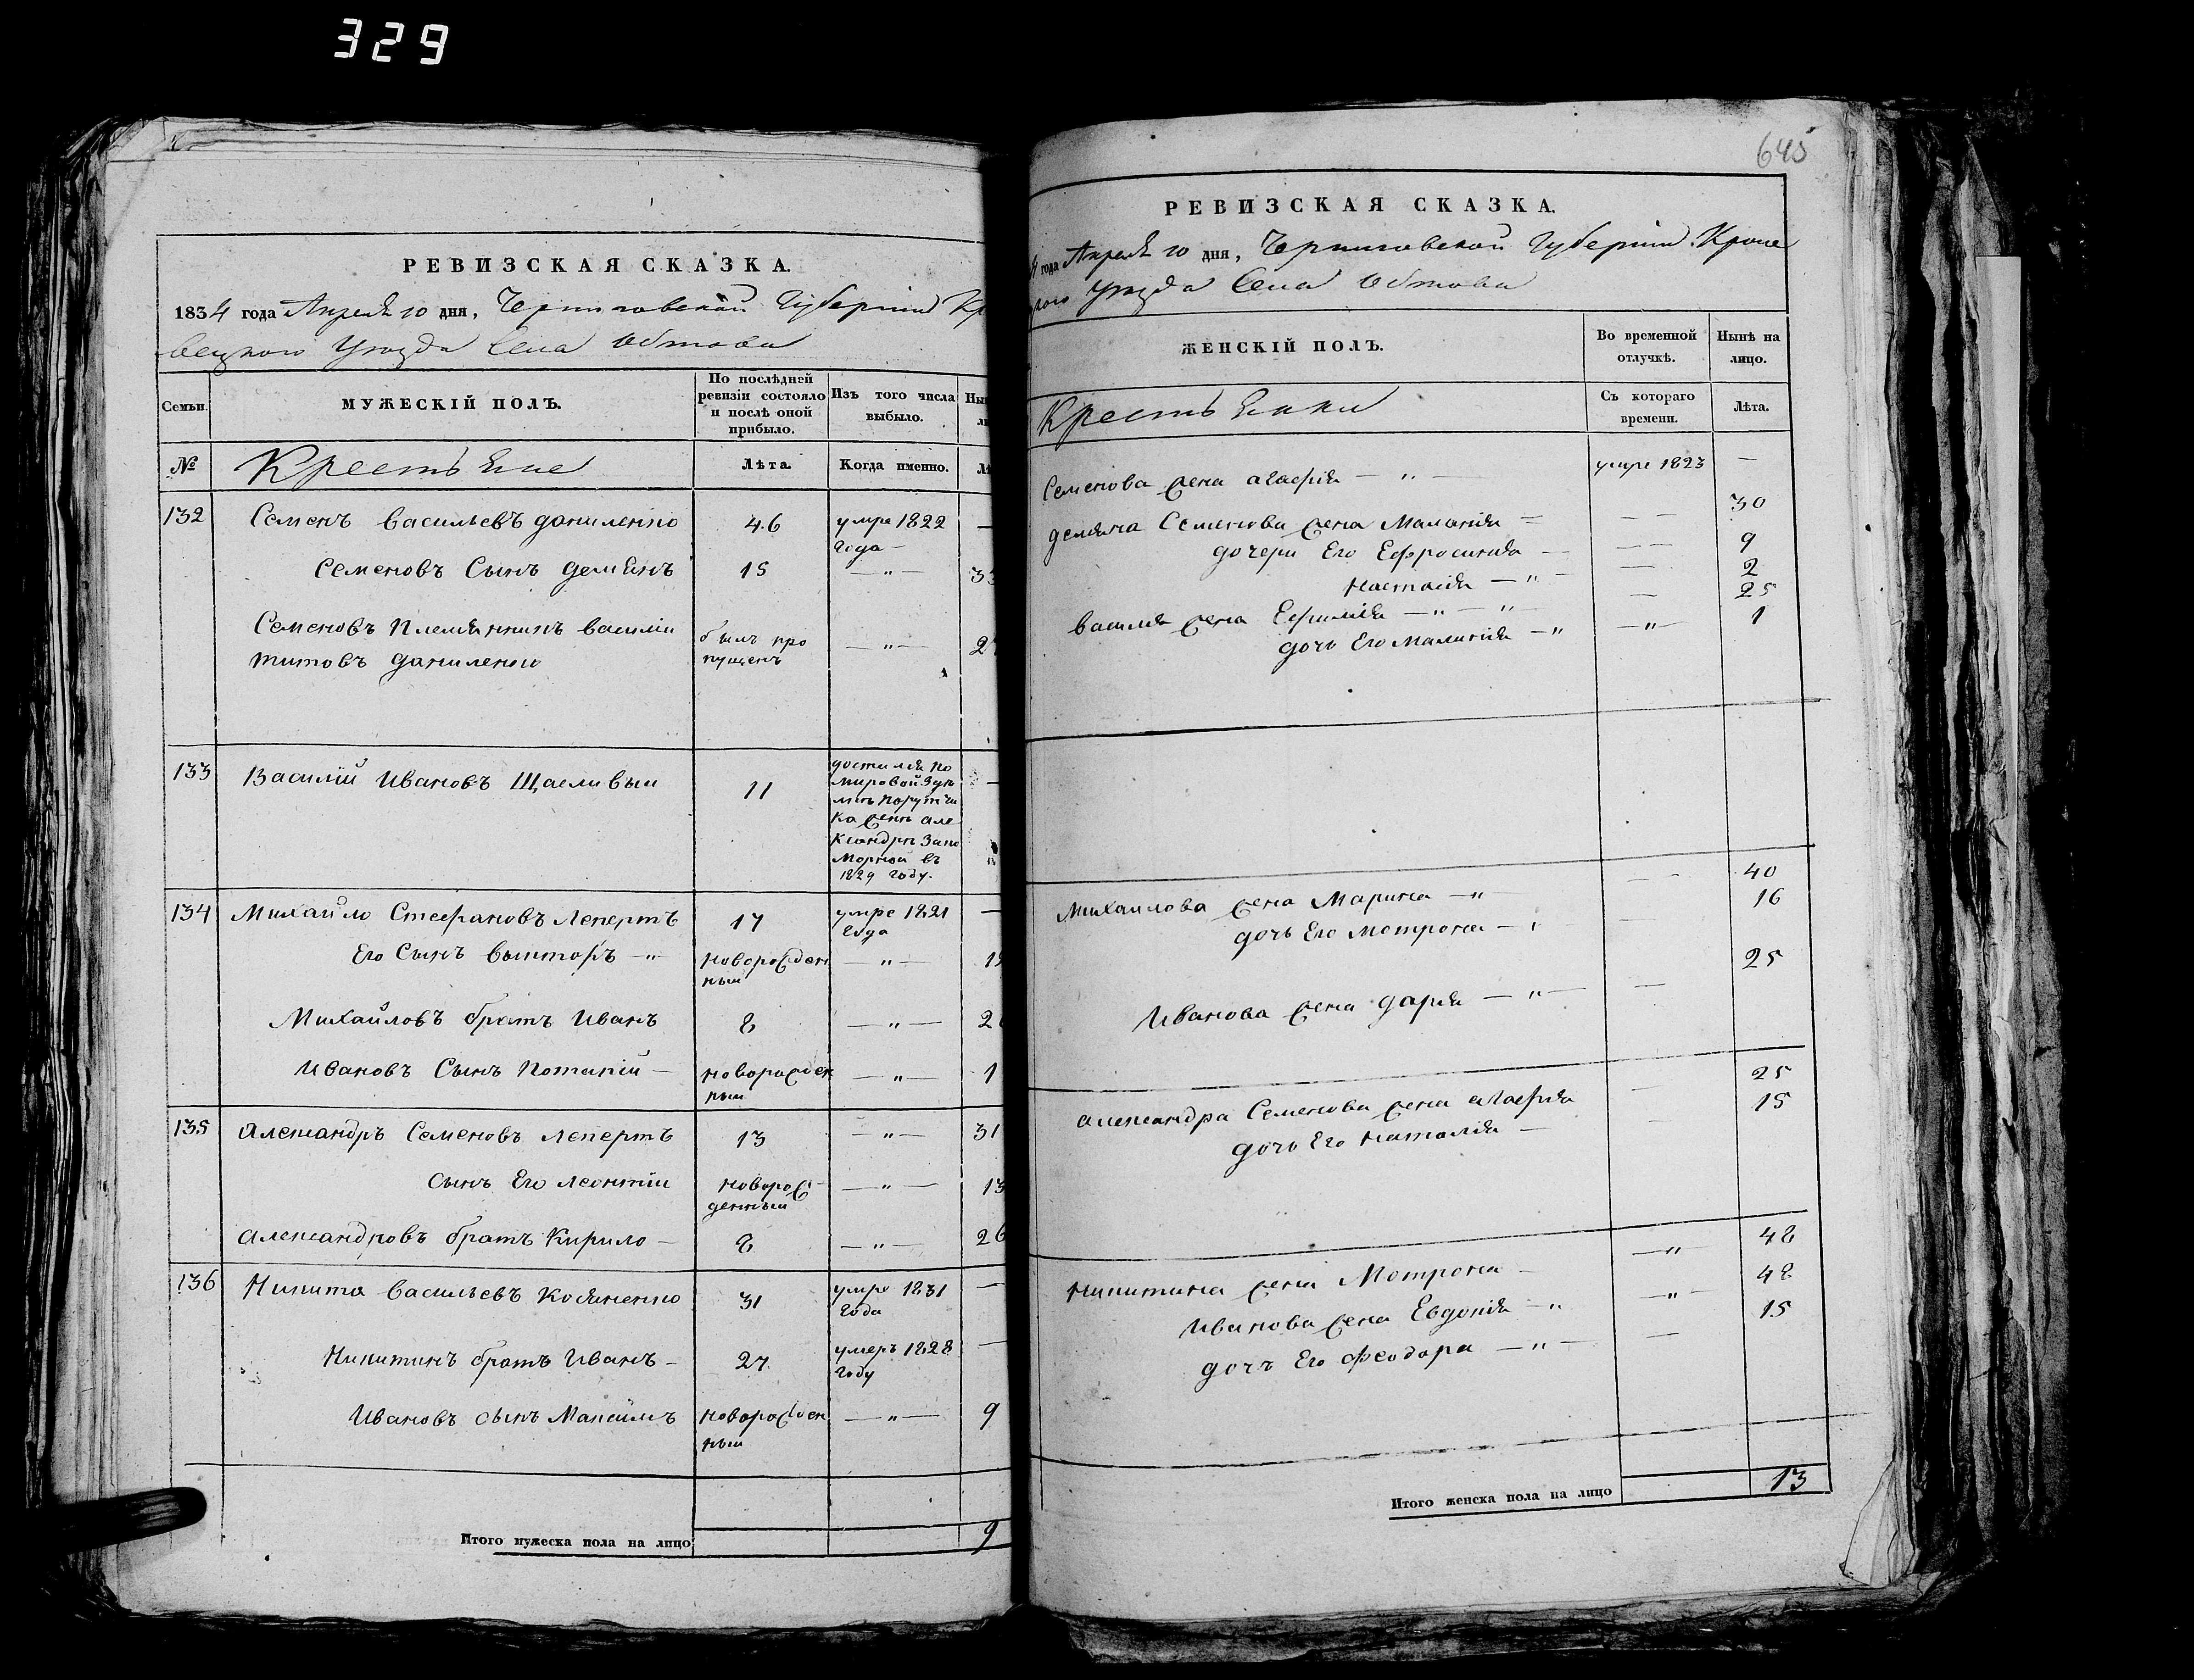 329
РЕВИЗСКАЯ СКАЗКА.
1834 года Апреля 10 дня, Черниговской Губернии Кр
вецкого Уезда Села Обтова
Семьи.
МУЖЕСКІЙ ПОЛЪ.
По послѣдней
ревизіи состояло
и послѣ оной
прибыло.
Изъ того числа
выбыло.
№
Крестьяне
Лѣта.
Когда именно.
132
Семенъ Васильевъ даниленко
46
умре 1822
года —
—
Семеновъ Сынъ демянъ
15
— " —
Семеновъ племянникъ василіи
титовъ даниленко
былъ про
пущенъ
— " —
133
Василій Ивановъ Щасливыи
11
достался по
мировой
порутчи
ка жене але
ксандре
въ
1829 году.
—
134
Михайло Стефановъ Лепертъ
17
умре 1821
года
—
Его Сынъ —"
новорожден
ныи
— " —
Михайловъ братъ Иванъ
8
— " —
Ивановъ Сынъ Потапій —
новорожден
ныи
— " —
1
135
александръ Семеновъ Лепертъ
13
— " —
31
сынъ Его леонтіи
новорож
денныи
— " —
13
александровъ братъ Кирило —
8
— " —
26
136
Никита васильевъ Косяненко
31
умре 1831
года
—
Никитинъ братъ Иванъ —
27
умеръ 1828
году
—
Ивановъ сынъ Максимъ
новорожден
ныи
— " —
9
Итого мужеска пола на лицо
9
645
РЕВИЗСКАЯ СКАЗКА.
4 года Апреля 10 дня, Черниговской Губернии Кроле
Уезда Села Обтова
ЖЕНСКІЙ ПОЛЪ.
Во временной
отлучкѣ.
Нынѣ на
лицо.
Крестьянки
Съ котораго
времени.
Лѣта.
Семенова жена агафія — " —
умре 1823
—
демяна Семенова жена Маланія
— —
30
дочери Его Ефросинія —
— —
9
настасія — " —
—
2
василя жена Ефимія — " — "
—
25
дочь Его маланія — "
— " —
1
Михайлова жена Марина — "
— -
40
дочь Его мотрона —
—
16
Иванова жена дарія — " —
—
25
александра Семенова жена агафія
—
25
дочь Его наталія —
—
15
Никитина жена Мотрона —
— " —
48
Иванова жена Евдокія — "
— " —
48
дочъ Его феодора — " —
—
15
Итого женска пола на лицо
13